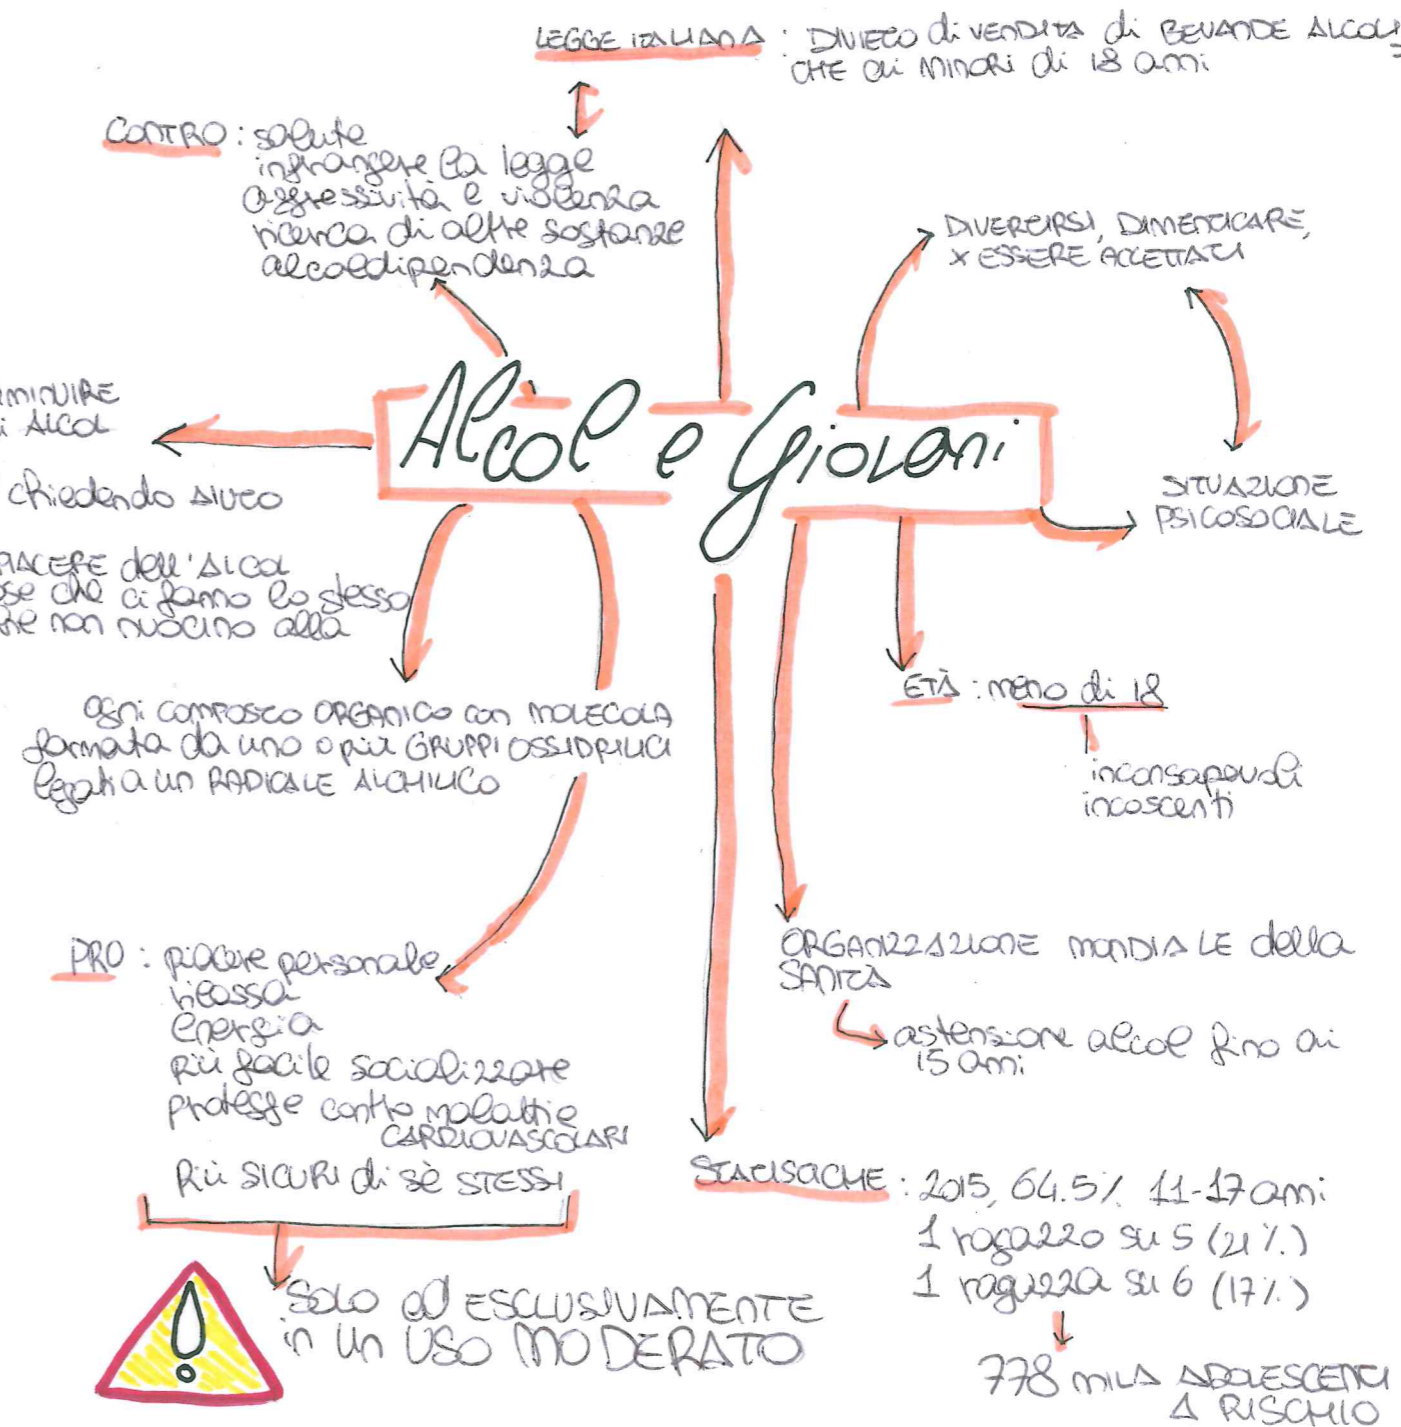 LEGGE ITALIANA : DIVIETO di VENDITA di BEVANDE ALCOLI-
CHE ai MINORI di 18 anni
CONTRO : salute
infrangere la legge
aggressività e violenza
ricerca di altre sostanze
alcoldipendenza
DIVERTIRSI, DIMENTICARE,
x ESSERE ACCETTATI
MINUIRE
i ALCOL
Alcol e Giovani
chiedendo AIUTO
SITUAZIONE
PSICOSOCIALE
IACERE dell'ALCOL
se che ci fanno lo stesso
he non nuocino alla
ETÀ : meno di 18
inconsapevoli
incoscenti
ogni COMPOSTO ORGANICO con MOLECOLA
formata da uno o più GRUPPI OSSIDRILICI
legati a un RADICALE ALCHILICO
PRO : piacere personale
rilassa
energia
più facile socializzare
protegge contro malattie
CARDIOVASCOLARI
Più SICURI di sè STESSI
ORGANIZZAZIONE MONDIALE della
SANITÀ
astensione alcol fino ai
15 anni
STATISTICHE : 2015, 64.5% 11-17 anni
1 ragazzo su 5 (21%)
1 ragazza su 6 (17%)
778 MILA ADOLESCENTI
A RISCHIO
!
SOLO ed ESCLUSIVAMENTE
in un USO MODERATO